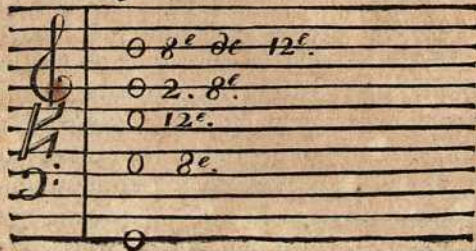 8e de 12e.
2. 8e.
12e.
8e.